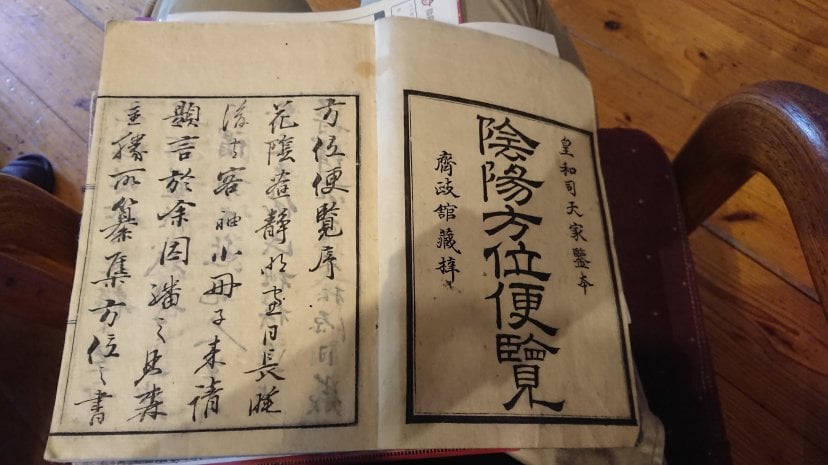 皇和司天家鑒本
陰陽方位便覽
齊政館藏梓
方位便覽序
花陰畫靜明窗日長睡
後有客袖小冊子来請
題言於余因繙之森
主所纂集方位之書